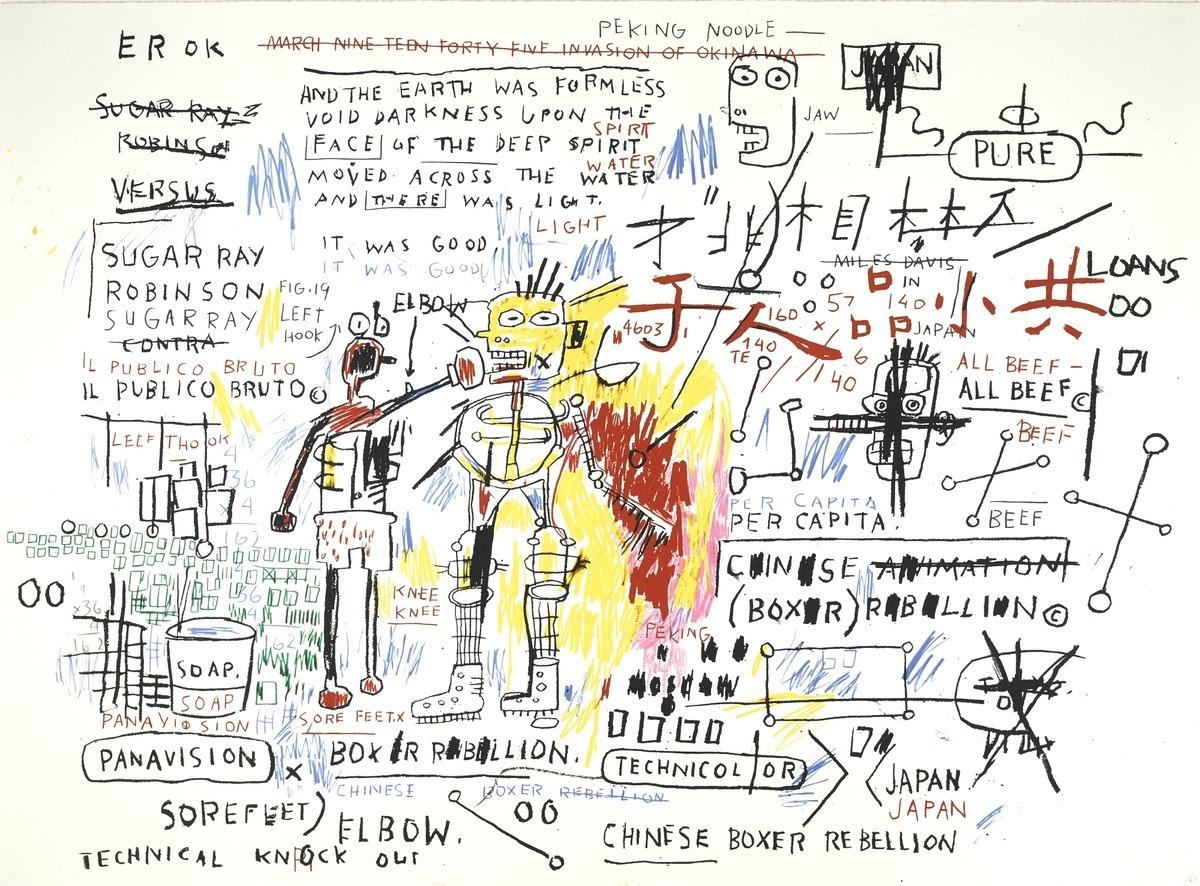 PEKING NOODLE —
EROK
MARCH NINETEEN FORTY FIVE INVASION OF OKINAWA
JAPAN
SUGAR RAY
ROBINSON
VERSUS
AND THE EARTH WAS FORMLESS
VOID DARKNESS UPON THE
SPIRIT
FACE OF THE DEEP SPIRIT
WATER
MOVED ACROSS THE WATER
AND THERE WAS LIGHT.
LIGHT
IT WAS GOOD
IT WAS GOOD
JAW
PURE
SUGAR RAY
ROBINSON
SUGAR RAY
CONTRA
IL PUBLICO BRUTO
IL PUBLICO BRUTO©
FIG.19
LEFT
HOOK
ELBOW
MILES DAVIS
IN
140
JAPAN
子人品小共
LOANS
OO
4603
160
57
x
6
140
TE
40
ALL BEEF -
ALL BEEF©
BEEF
BEEF
LEEF THOOK
4
36
x 4
162
36
4
162
x36
162
OO
SOAP.
SOAP
PANAVISION
KNEE
KNEE
SORE FEET.X
PER CAPITA
PER CAPITA.
CHINESE ANIMATION
(BOXER) REBELLION©
PEKING
PANAVISION
x
BOXER REBELLION.
CHINESE BOXER REBELLION
TECHNICOLOR
JAPAN
JAPAN
SOREFEET)
ELBOW.
OO
CHINESE BOXER REBELLION
TECHNICAL KNOCK OUT